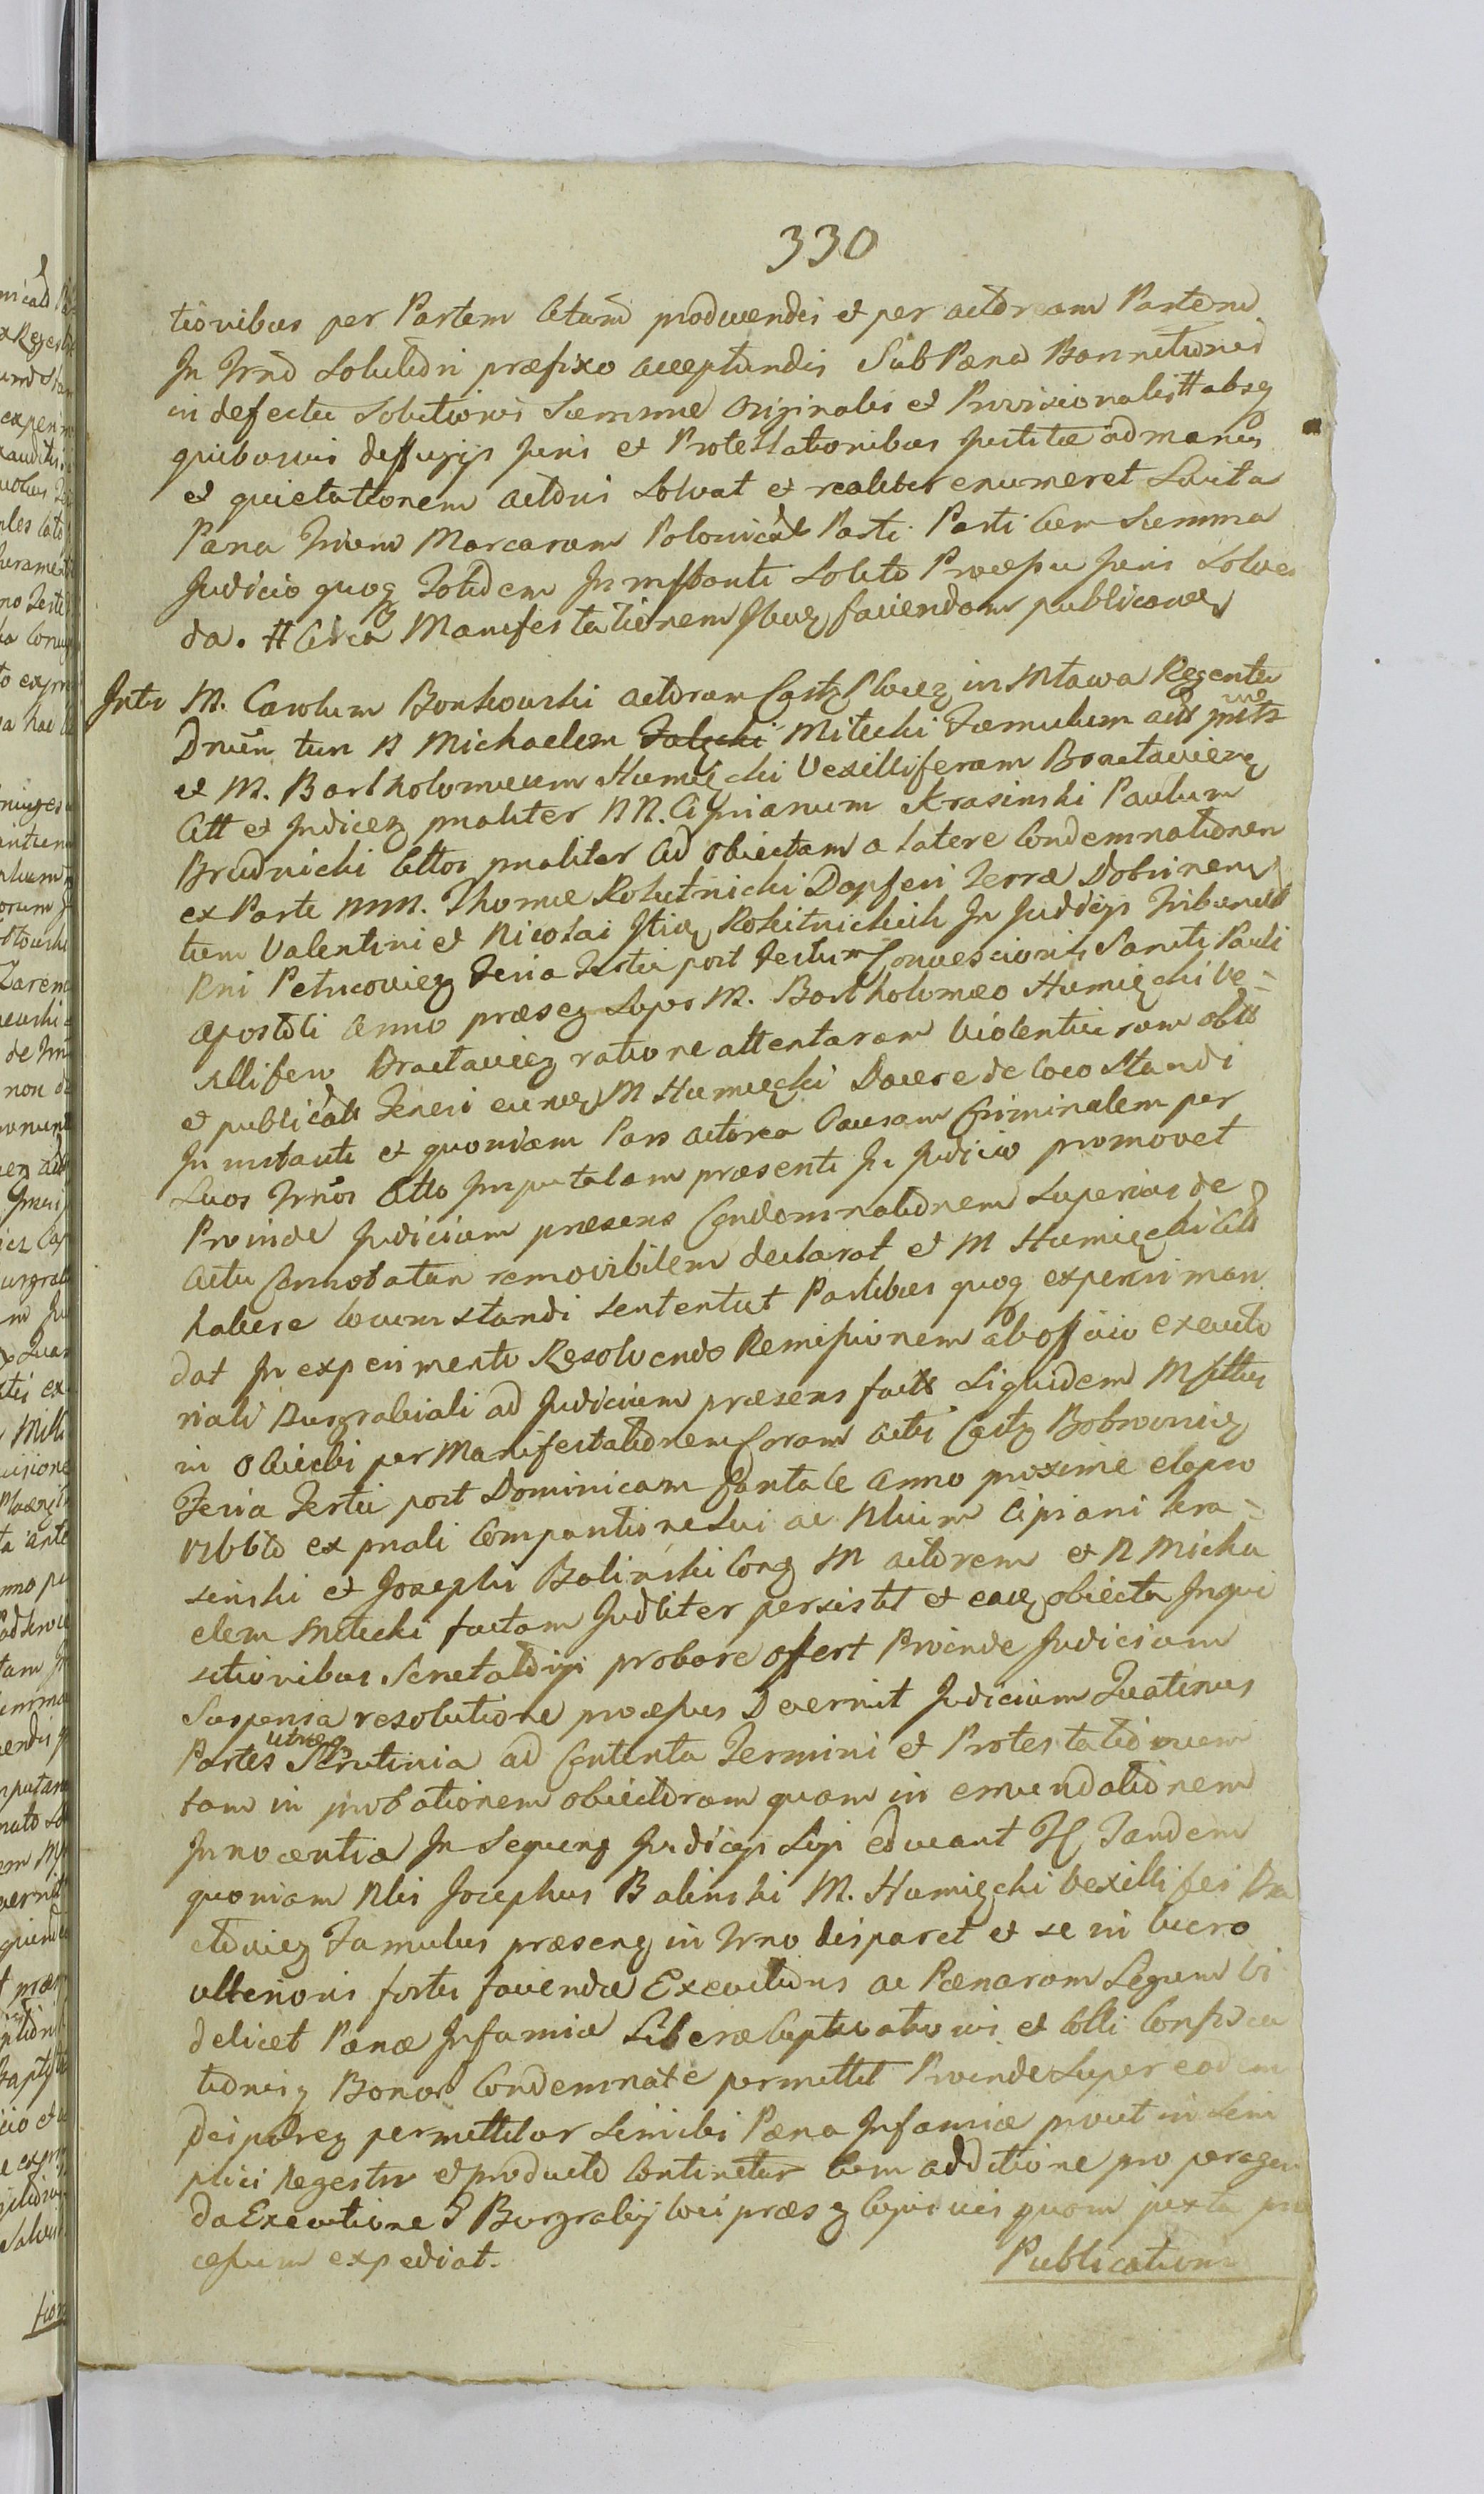 330
tionibus per Partem Citatam producendis et per actoream Partem
In Trno Solutioni præfixo acceptandis Sub Pæna Bannitionis
in defectu Solutionis Summæ Originalis et Provisionalis # absq
quibusvis deffugijs Juris et Protestationibus Justitiæ ad manus
et quietationem actoris Solvat et realiter enumeret Luita
Pæna Trium Marcarum Polonical Parti Parti Cum Summa
Judicio quoq Totidem In instanti Solito Processu Juris Solven
da. # Circa Manifestationem faciendam publicavez
Inter M. Carolum Bonkowski actorum Castz Plocez in Mlawa Regentem
Dnum tun N Michaelem Mitecki Famulum act
et M. Bartholomeum Humięcki Vexilliferum Braclaviez
Citt et Judicez pnaliter NN. Ciprianum Krasinski Paulum
Brudnicki Cittos pnaliter Ad obiectam a latere Condemnationem
ex Parte MM. Thomæ Rokitnicki Dapferi Terræ Dobrinen
tum Valentini et Nicolai Rokitnickich In Judicijs Tribunall
Rni Petricoviez Feria Tertia post Festum Conversionis Sancti Pauli
Apostoli Anno præsez Super M. Bartholomeo Humięcki Ve=
xillifero Braclaviez ratione attentarum Violentiarum obtt
et publicatt Teneri M Humięcki Docere de loco Standi
In instanti et quoniam Pars actorea Causam Criminalem per
Suos Trnos Citto Imputatam præsenti In Judicio promovet
Proinde Judicium præsens Condemnationem Superius de
actu Connotatam removibilem declarat et M Humięcki Citt
habere locum standi Sententiat Partibus quoq experiri man
dat In experimento Resolvendo Remissionem ab officio executo
riali Burgrabiali ad Judicium præsens factt Siquidem
in Obiecti per Manifestationem Coram actis Castz Bobrovniez
Feria Tertia post Dominicam Cantate Anno proxime elapso
1766to ex pnali Comparitione Sui ac Nlium Cipriani Kra=
sinski et Josephi Balinski Conz M actorem et N Micha
elem Mitecki factam Judliter persistit et obiecta Inqui
sitionibus probare offert Proinde Judicium
Suspensa resolutione processus Decernit Judicium Quatinus
Partes utræq Scrutinia ad Contenta Termini et Protestationum
tam in probationem obiectorum quam in emundationem
Innocentiæ In Sequenz Judicijs Sui educant Tandem
quoniam Nlis Josephus Balinski M. Humięcki Vexilliferi Bra
claviez Famulus præsenz in Trno disparet et se in lucro
ulterioris fortis faciendæ Executionis ac Pænarum Legum Vi
delicet Pænæ Infamiæ Liberæ Captivationis et Colli Confisca
tionisq Bonor Condemnate permittit Proinde Super eodem
disparez permittitur Similis Pæna Infamiæ prout in Sim
plici Regestro et producto Continetur Cum additione pro peragen
da Executione Burgrabij loci præsz cujusvis quam juxta pro
cessum expediat.
Publicatum